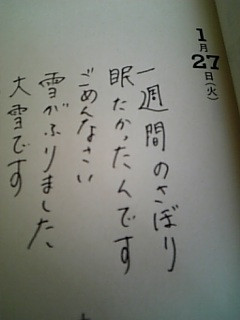 1月27日(火)
一週間のさぼり
眠たかったんです
ごめんなさい
雪がふりました
大雪です